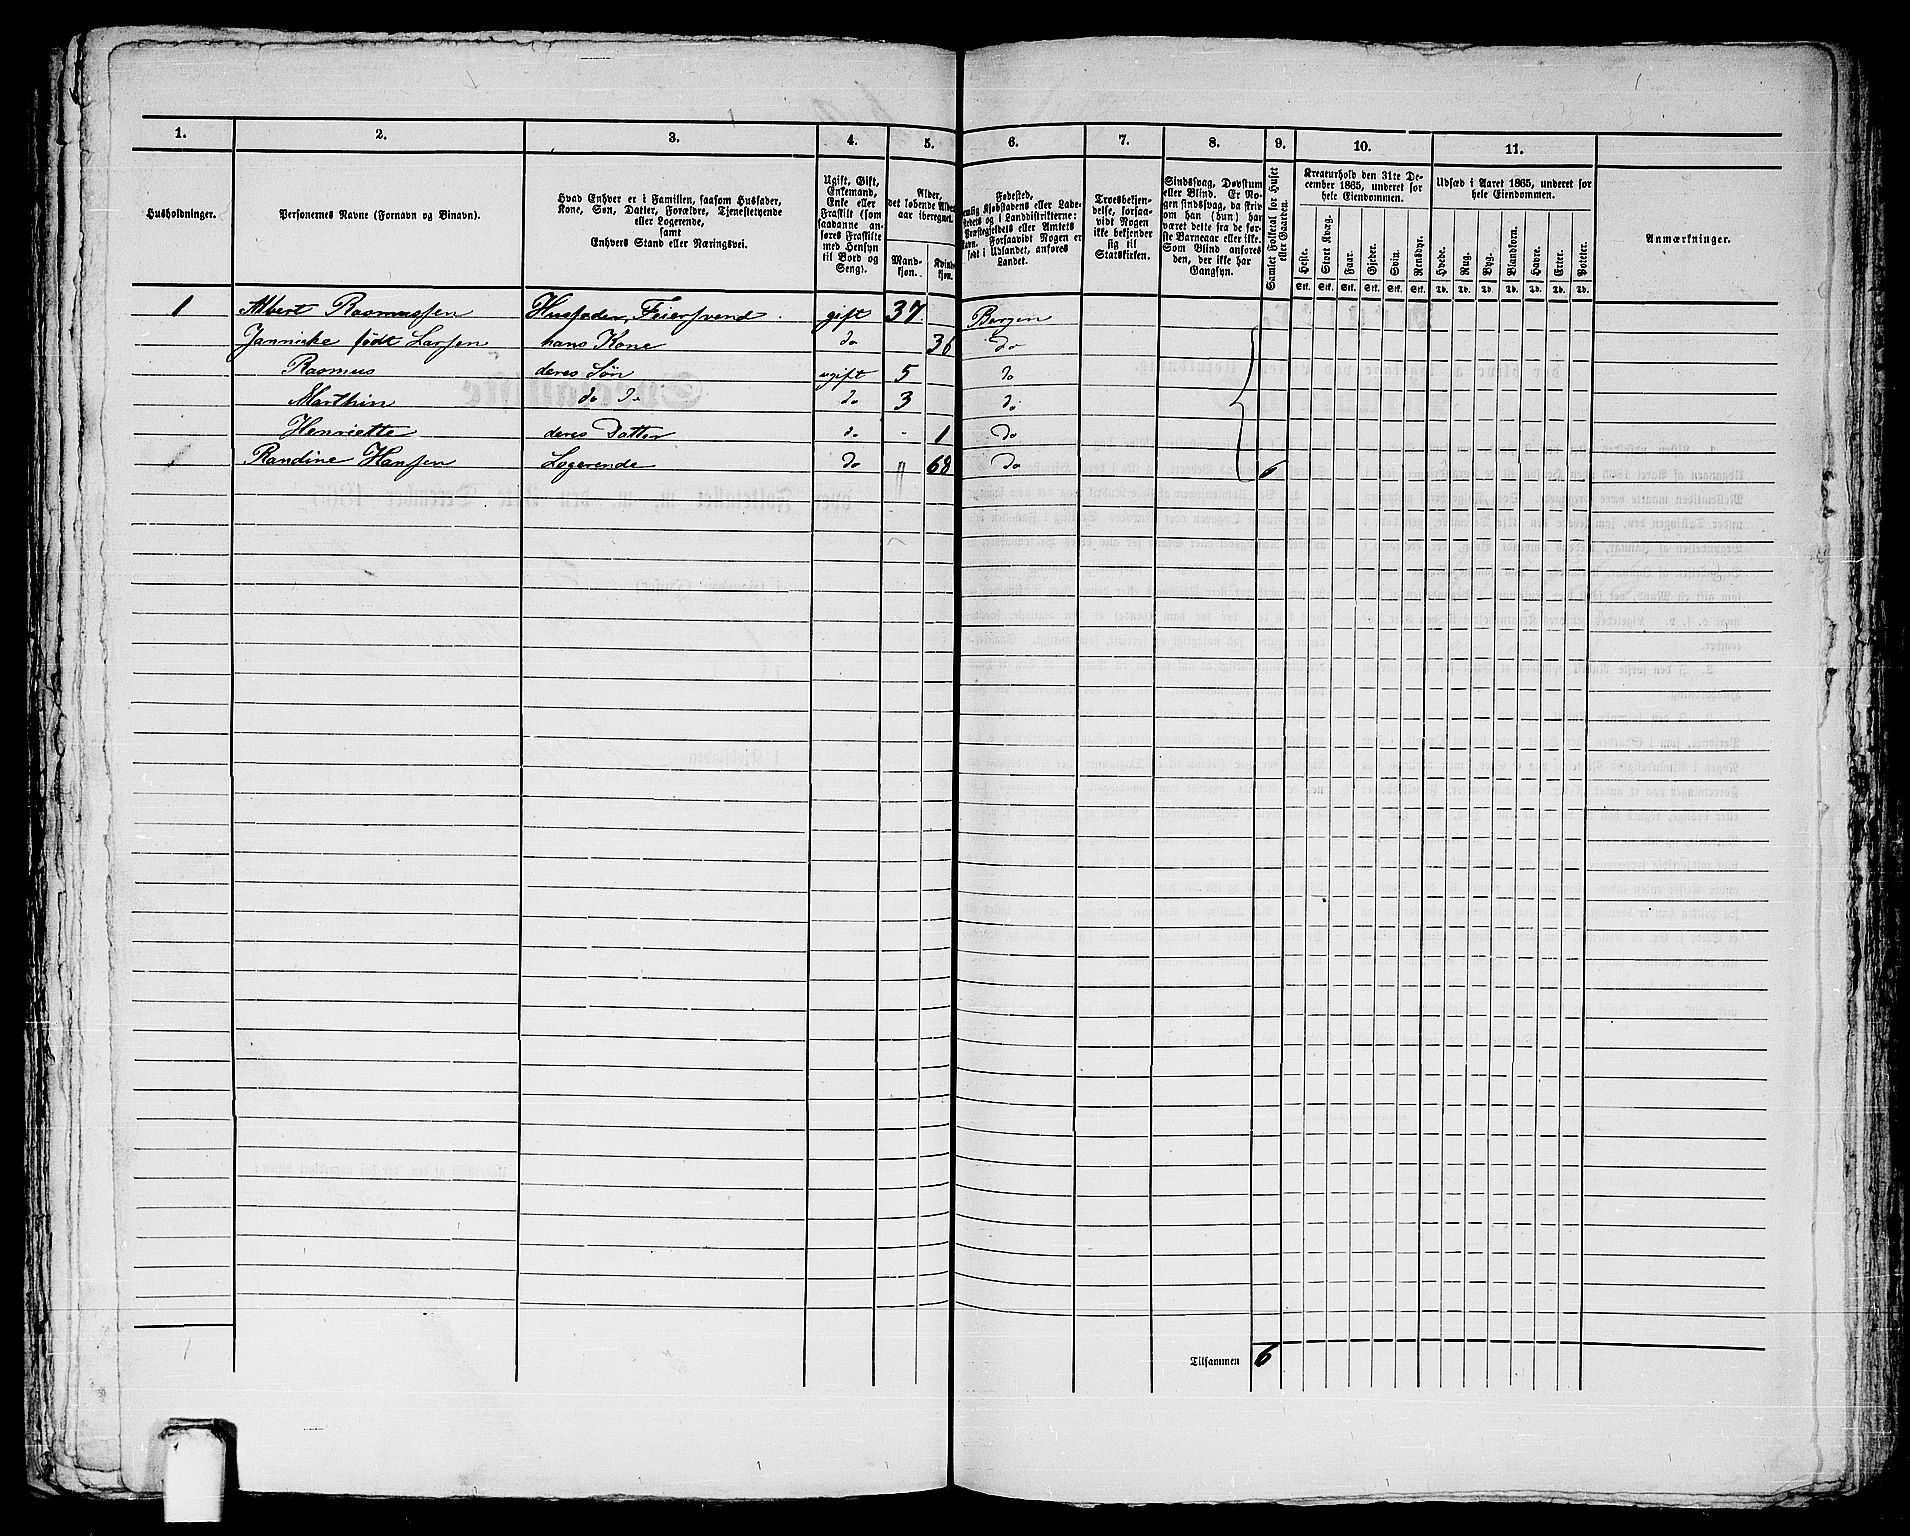 1. 2. 3. 4. 5. 6. 7. 8. 9. 10. 11.
Husholdninger.
Personernes Navne (Fornavn og Binavn).
Hvad Enhver er i Familien, saasom Husfader,
Kone, Søn, Datter, Forældre, Tjenestetyende
eller Logerende,
samt
Enhvers Stand eller Næringsvei.
Ugift, Gift,
Enkemand,
Enke eller
Fraskilt (som
saadanne an-
føres Fraskilte
med Hensyn
til Bord og
Seng).
Alder,
det løbende Alders-
aar iberegnet.
Mand-
kjøn.
Kvind-
kjøn.
Fødested,
nemlig Kjøbstadens eller Lade-
stedets og i Landdistrikterne:
Præstegjeldets eller Amtets
Navn. Forsaavidt Nogen er
født i Udlandet, anføres
Landet.
Troesbekjen-
delse, forsaa-
vidt Nogen
ikke bekjender
sig til
Statskirken.
Sindssvag, Døvstum
eller Blind. Er No-
gen sindssvag, da skriv
om han (hun) har
været dette fra de før-
ste Barneaar eller ikke.
Som Blind anføres
den, der ikke har
Gangsyn.
Samlet Folketal for Huset
eller Gaarden.
Kreaturhold den 31te De-
cember 1865, underet for
hele Eiendommen.
Heste. Stort Kvæg. Faar. Gjeder. Svin. Rensdyr.
Stk. Stk. Stk. Stk. Stk. Stk.
Udsæd i Aaret 1865, underet for
hele Eiendommen.
Hvede. Rug. Byg. Blandkorn. Havre. Erter. Poteter.
Td. Td. Td. Td. Td. Td. Td.
Anmærkninger.
1 Albert Rasmussen Husfader, Feiersvend gift 37 Bergen
Jannicke født Larsen hans Kone do 36 do
Rasmus deres Søn ugift 5 do
Marthin do do do 3 do
Henriette deres Datter do - 1 do
Randine Hansen Logerende do " 68 do 6
Tilsammen 6